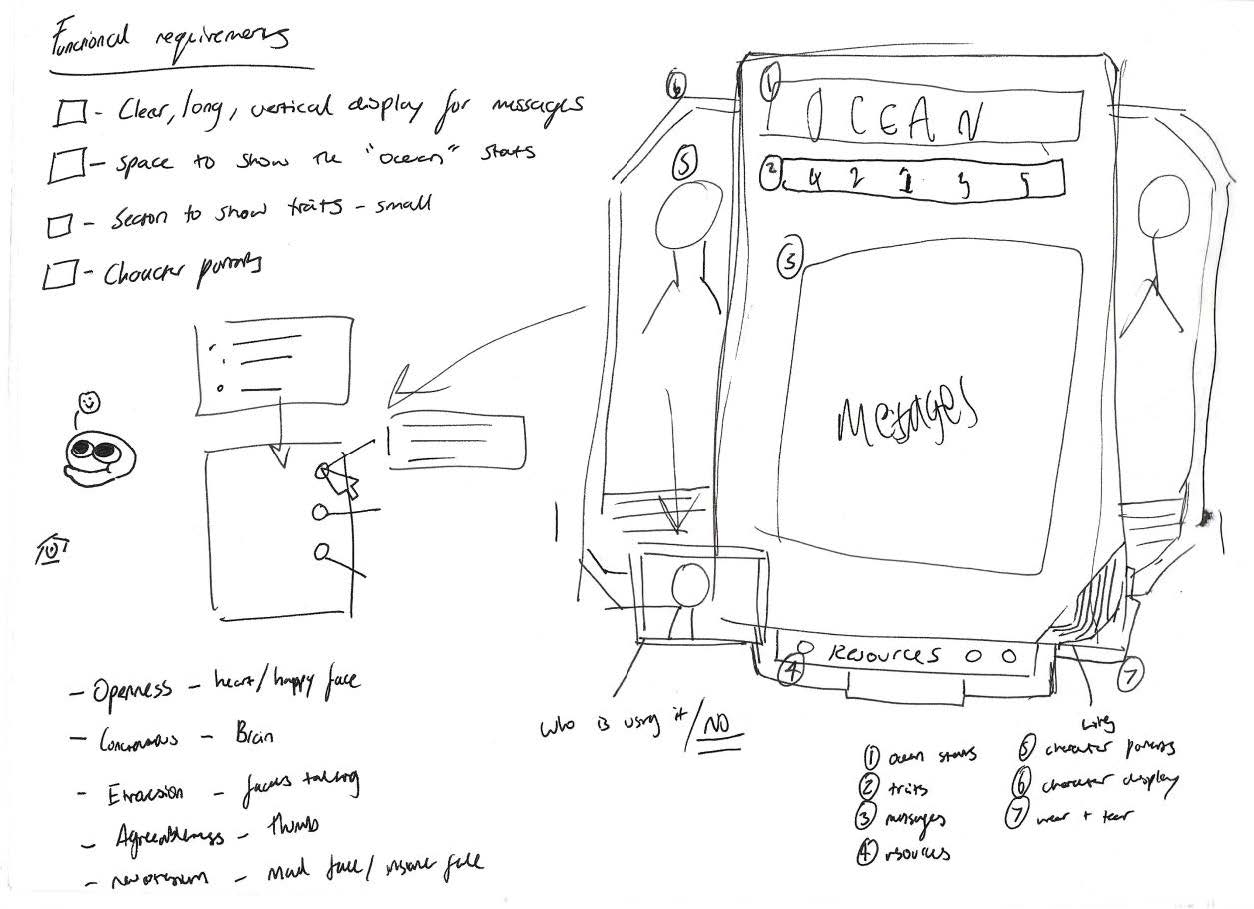 Functional requirements
- Clear, long, vertical display for messages
- space to show the "ocean" stats
- Section to show traits - small
- Character portraits
6
1
OCEAN
5
2
4 2 1 3 5
3
Messages
4
Resources
7
who is using it / NO
wires
- Openness - heart/happy face
- Brain
- Extraversion - faces talking
- Agreeableness - thumb
- neuroticism - mad face/insane face
1 ocean stats
2 traits
3 messages
4 resources
5 character portraits
6 character display
7 wear + tear